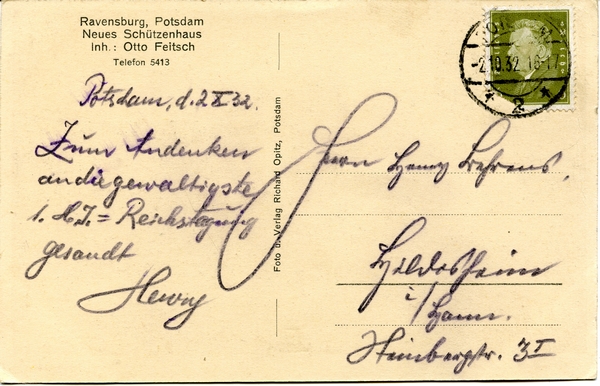 Ravensburg, Potsdam
Neues Schützenhaus
Inh.: Otto Feitsch
Telefon 5413
Potsdam, d. 2 X 32.
Zum Andenken
an die gewaltigste
1. H.J. = Reichstagung
gesandt
Henry
Foto u. Verlag Richard Opitz, Potsdam
-2.10.32. 16-17
2
Herrn Henry Behrens,
Hildesheim
i/Hann.
Steinbergstr. 3 I